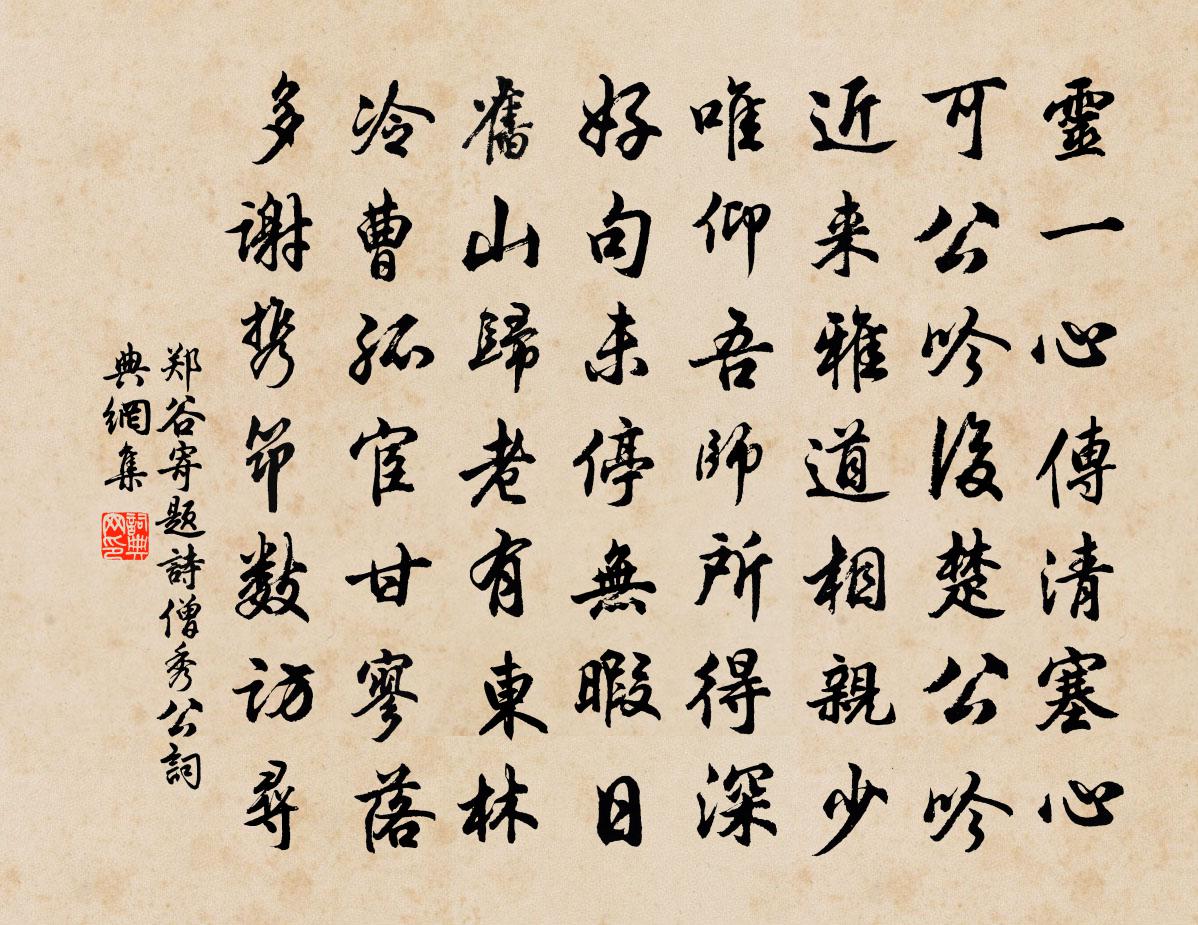 靈一心傳清塞心
可公吟後楚公吟
近来雅道相親少
唯仰吾師所得深
好句未停無暇日
舊山歸老有東林
冷曹孤宦甘寥落
多謝携笻數訪尋
郑谷寄題詩僧秀公詞
典網集
詞典网印